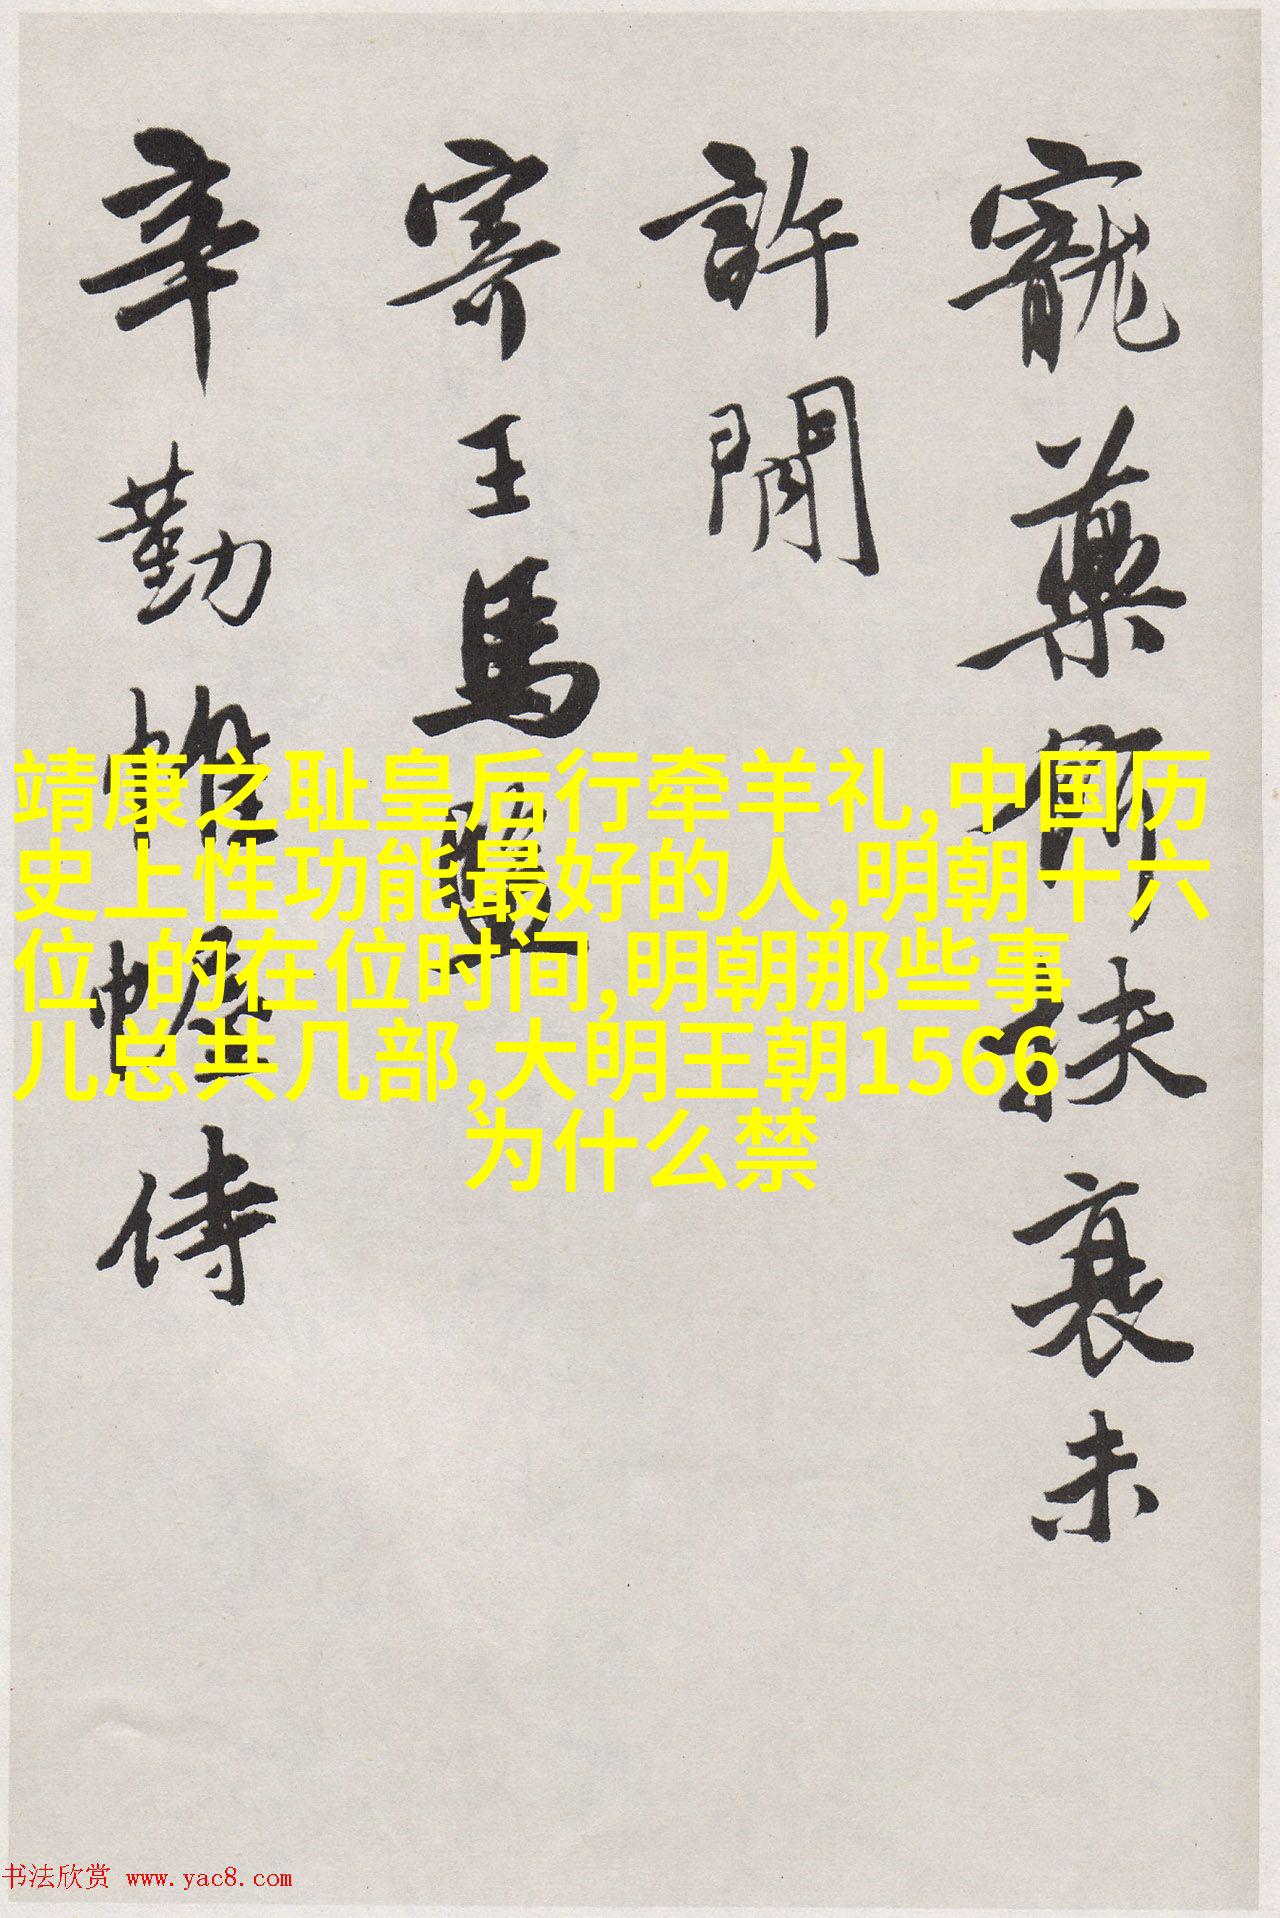 寵藥扶衰未
許閒
寄王馬監
辛勤帷幄侍
靖康之耻皇后行牵羊礼,中国历
史上性功能最好的人,明朝十六
位 的在位时间,明朝那些事
儿总共几部,大明王朝1566
为什么禁
书法欣赏 www.yac8.com